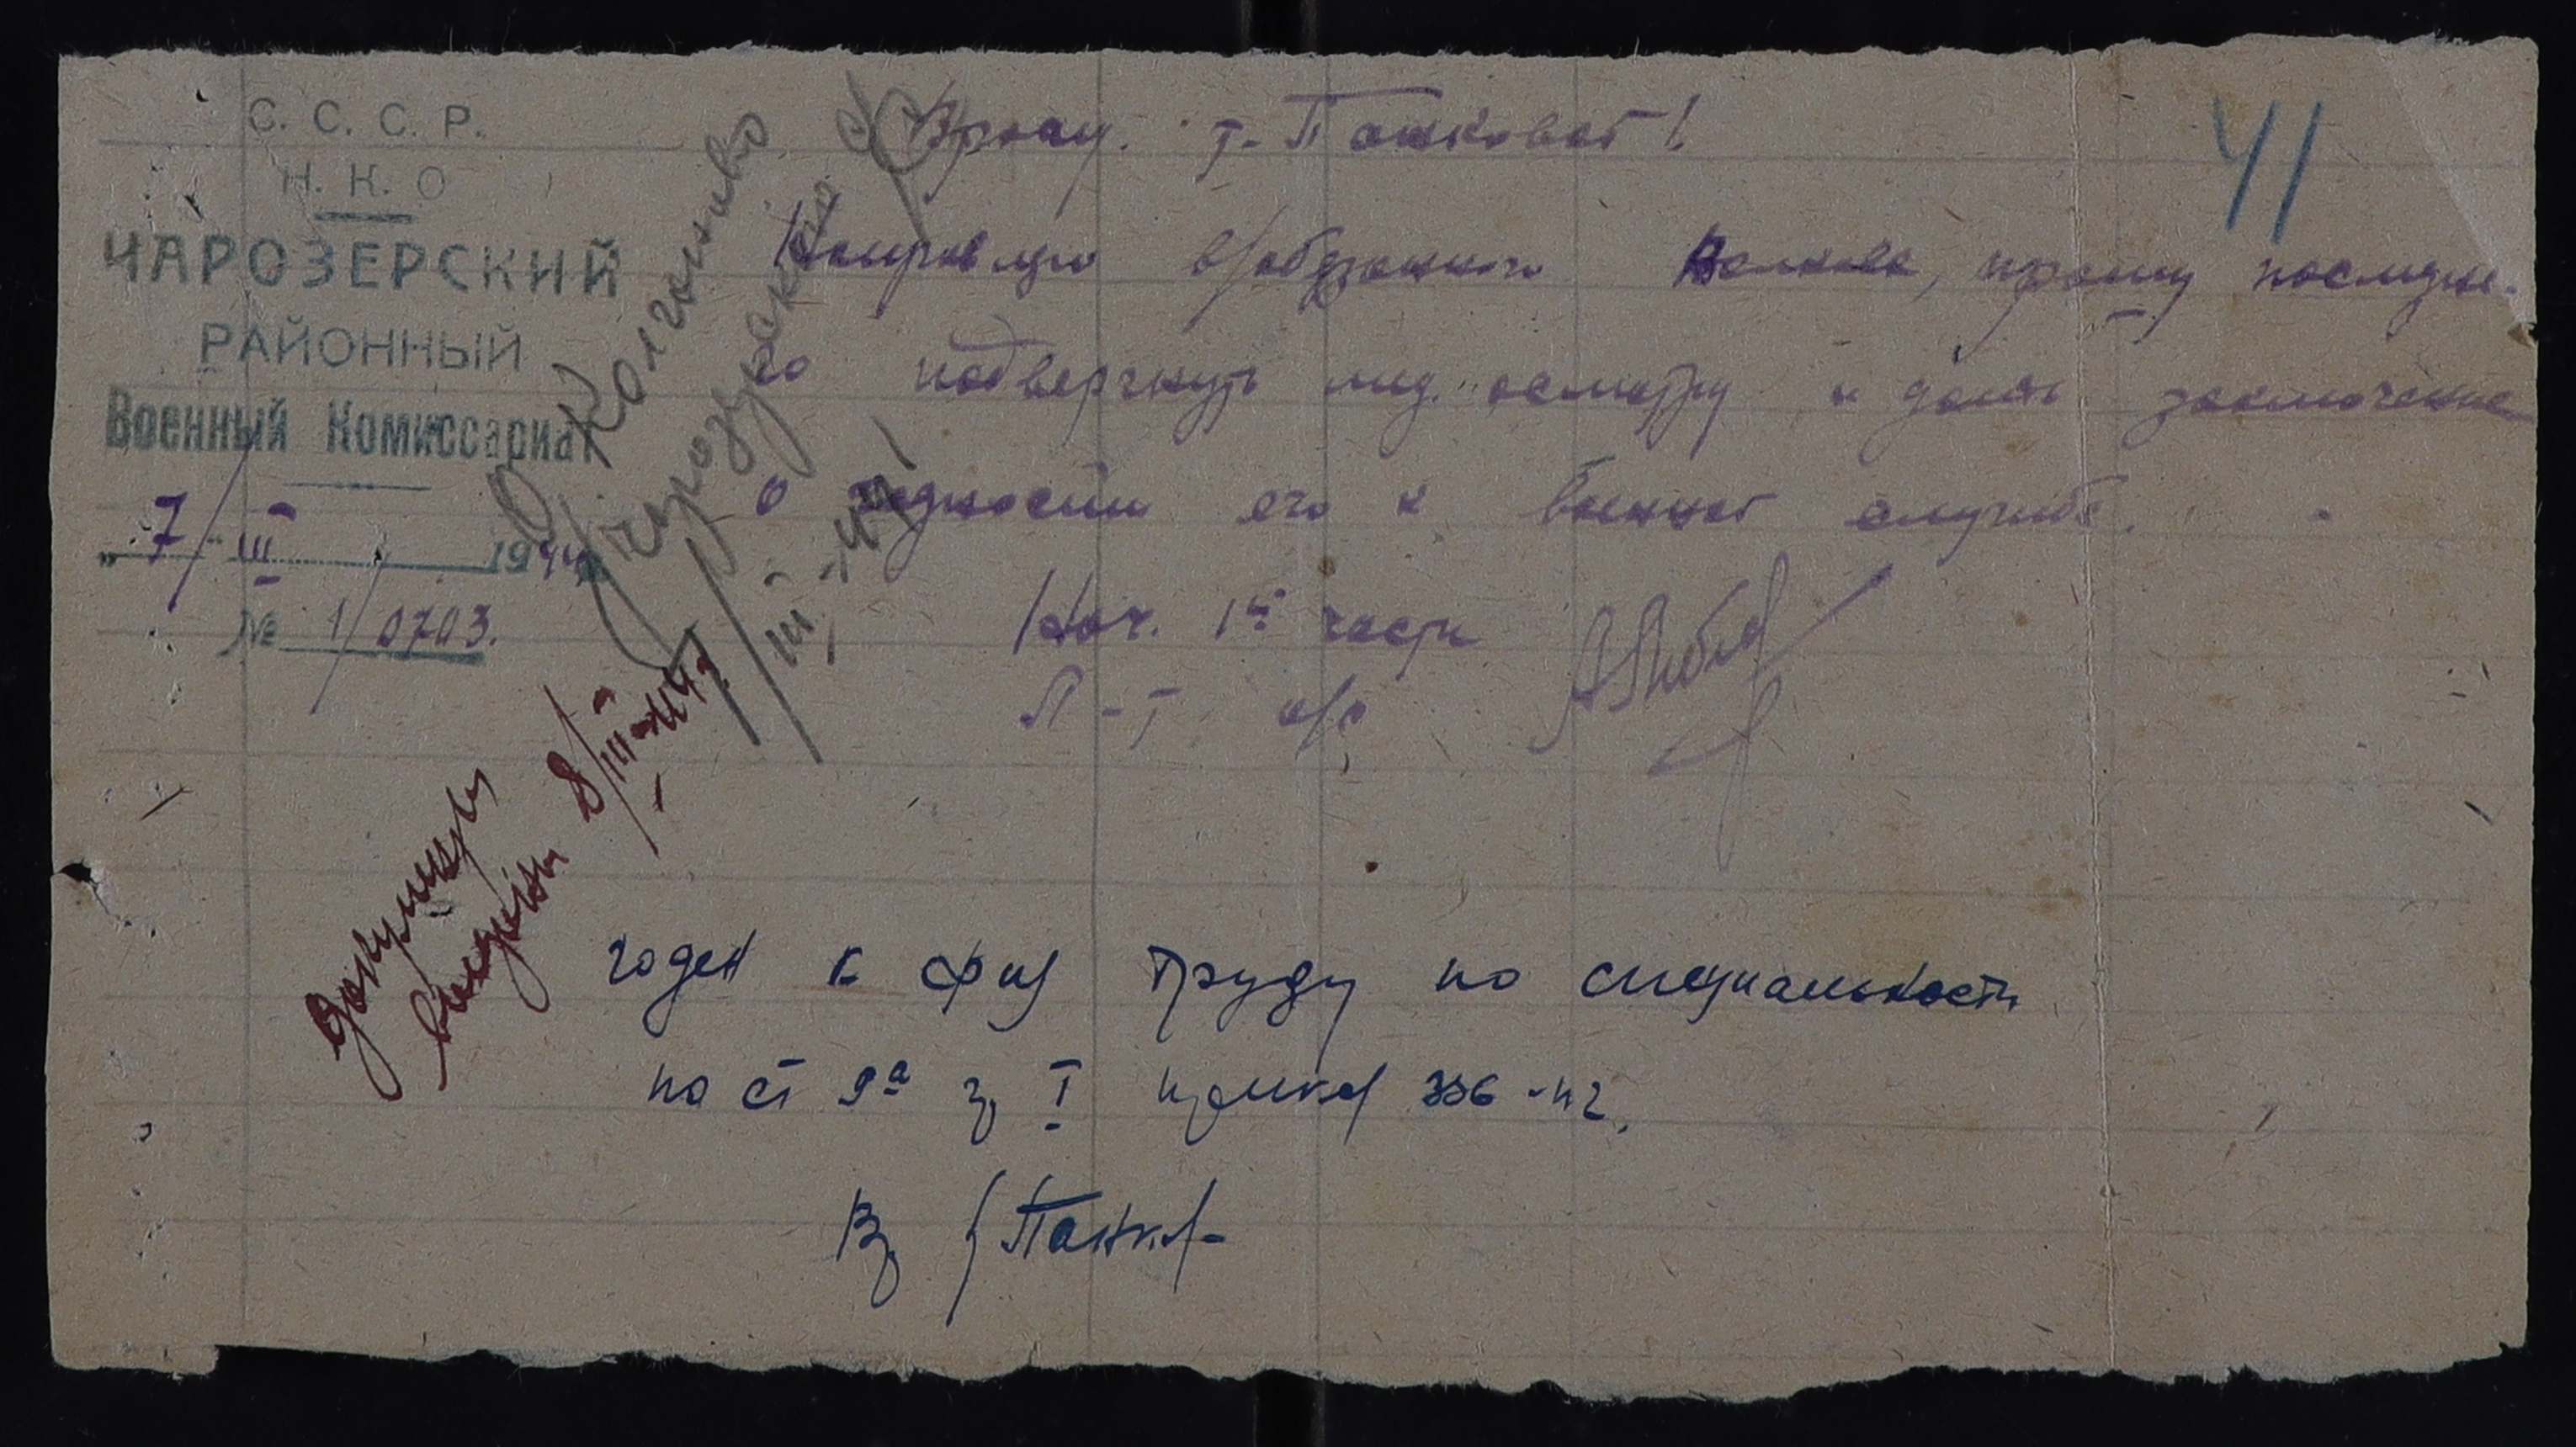 С. С. С. Р.
Н. К. О
ЧАРОЗЕРСКИЙ
РАЙОННЫЙ
Военный Комиссариат
"7/III 1944
№ 1/0703.
41
Врачу. т. Панковой!
Направляю в/обязанного Волкова, прошу последне-
го подвергнуть мед. осмотру и дать заключение
о годности его к военной службе.
Нач. 1й части
Л-т а/с
III-44
документы
выданы 8/III-44г.
годен к физ труду по специальности
по ст 9а гр I приказ 336-42.
Вр. Панков